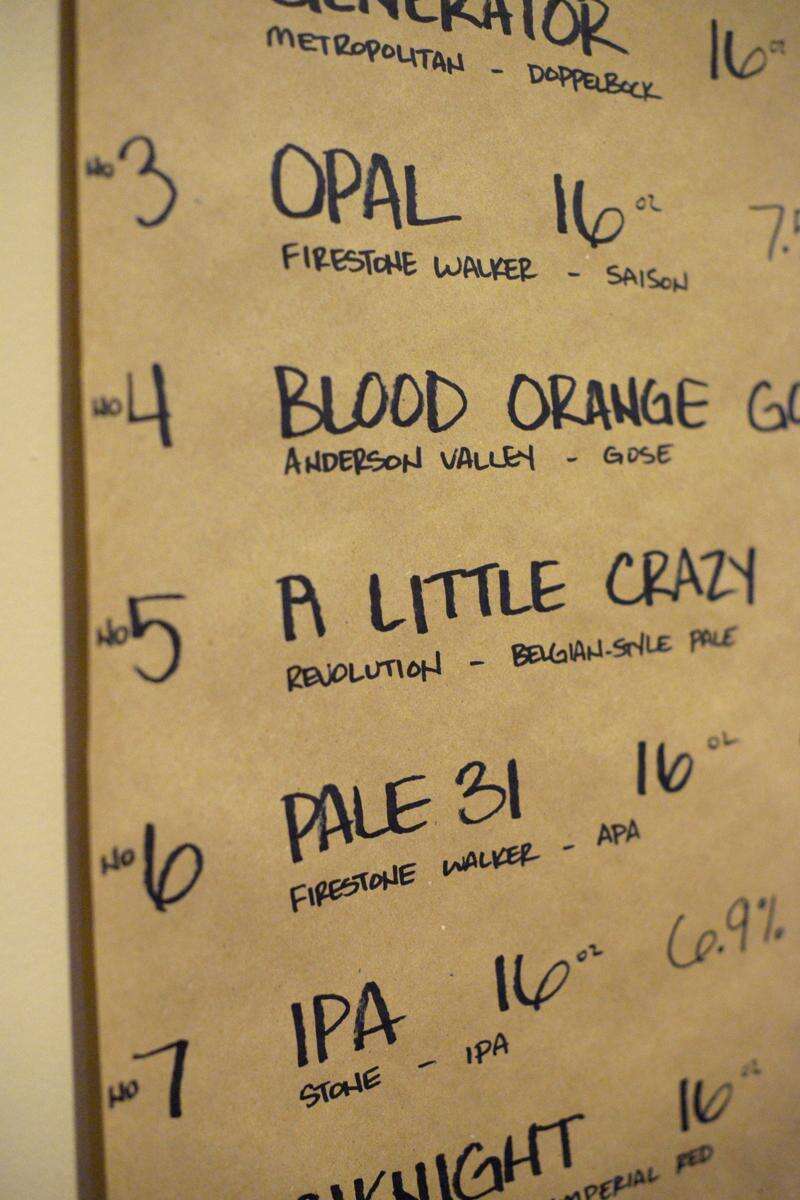 GENERATOR 16 oz
METROPOLITAN - DOPPELBOCK
No 3 OPAL 16 oz 7.5
FIRESTONE WALKER - SAISON
No 4 BLOOD ORANGE GO
ANDERSON VALLEY - GOSE
No 5 A LITTLE CRAZY
REVOLUTION - BELGIAN-STYLE PALE
No 6 PALE 31 16 oz
FIRESTONE WALKER - APA
No 7 IPA 16 oz 6.9%
STONE - IPA
KNIGHT 16 oz
IMPERIAL RED